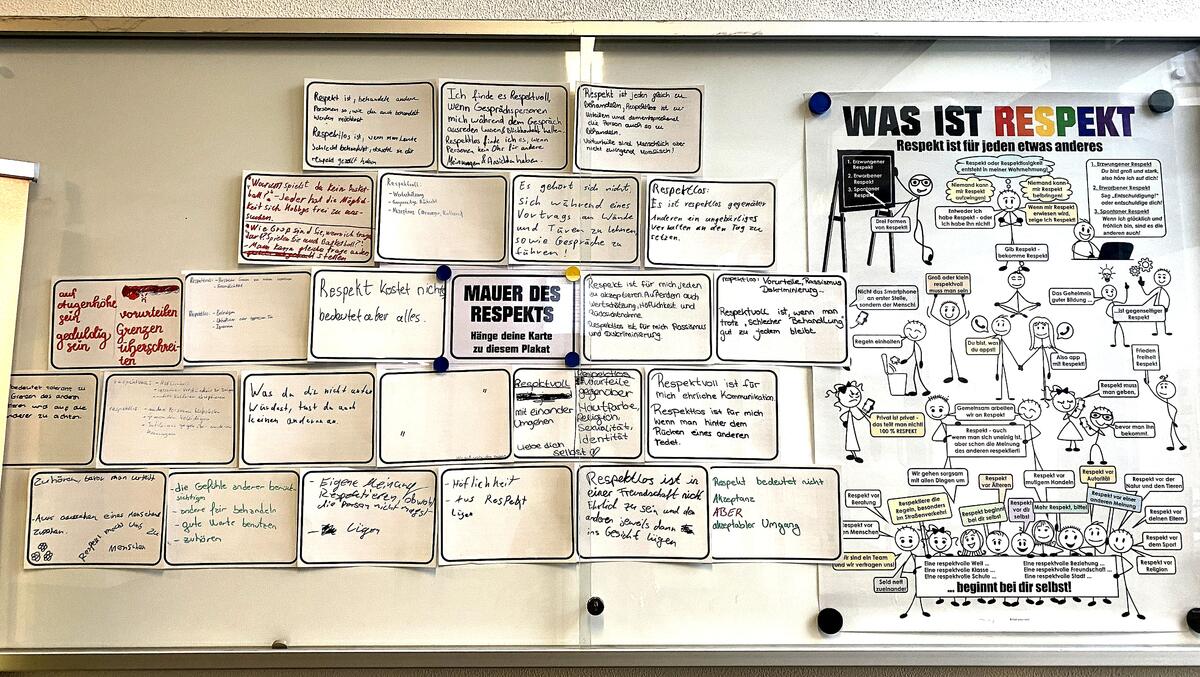 Respekt ist, behandele andere
Personen so, wie du auch behandelt
werden möchtest
Respektlos ist, wenn man Leute
schlecht behandelt,
Ich finde es Respektvoll,
wenn Gesprächspersonen
mich während dem Gespräch
ausreden lassen & Blickkontakt halten.
Respektlos finde ich es, wenn
Personen kein Ohr für andere
Meinungen & Ansichten haben.
Respekt ist jeden gleich zu
behandeln, Respektlos ist zu
Urteilen und dementsprechend
die Person auch so zu
behandeln.
Vorurteile sind Menschlich aber
nicht zwingend
"Warum spielst du kein Basket-
ball?" - Jeder hat die Möglich-
keit sich Hobbys frei zu aus-
suchen.
"Wie Groß sind Sie, wenn ich fragen
darf? Spielen Sie auch Basketball?"
- Man kann gleiche Frage anders
stellen
Respektvoll:
- Wertschätzung
- Gegenseitige Rücksicht
- Akzeptanz (Meinungen, Kulturen)
Es gehört sich nicht,
sich während eines
Vortrags an Wände
und Türen zu lehnen
sowie Gespräche zu
führen!
Respektlos:
Es ist respektlos gegenüber
Anderen ein ungebürliges
verhalten an den Tag zu
setzen.
auf
Augenhöhe
sein
geduldig
sein
vorurteilen
Grenzen
überschrei-
ten
Respekt kostet nichts
bedeutet aber alles.
MAUER DES
RESPEKTS
Hänge deine Karte
zu diesem Plakat
Respekt ist für mich jeden
zu akzeptieren. Außerdem auch
Wertschätzung, Höflichkeit und
Rücksichtnahme.
Respektlos ist für mich Rassismus
und Diskriminierung.
respektlos: Vorurteile, Rassismus
Diskriminierung...
Respektvoll ist, wenn man
trotz „schlechter Behandlung"
gut zu jedem bleibt
bedeutet tolerant zu
Grenzen des anderen
zu achten.
Was du dir nicht antun
würdest, tust du auch
keinen anderen an.
"
"
Respektvoll
mit einander
Umgehen
Liebe dich
selbst
Respektlos
Vorurteile
gegenüber
Hautfarbe,
Religion,
Sexualität,
Identität
Respektvoll ist für
mich ehrliche Kommunikation.
Respektlos ist für mich
wenn man hinter dem
Rücken eines anderen
redet.
Zuhören, bevor man urteilt
- Aufs aussehen eines Menschens
zu achten.
Respekt macht uns zu
Menschen
- die Gefühle anderer berück-
sichtigen
- andere fair behandeln
- gute Worte benutzen
- zuhören
- Eigene Meinung
Respektieren, obwohl
die Person nicht mags!
- Lügen
- Höflichkeit
- Aus Respekt
Lügen
Respektlos ist in
einer Freundschaft nicht
Ehrlich zu sein und den
anderen jeweils dann
ins Gesicht lügen
Respekt bedeutet nicht
Akzeptanz
ABER
akzeptabler Umgang
WAS IST RESPEKT
Respekt ist für jeden etwas anderes
1. Erzwungener
Respekt
2. Erworbener
Respekt
3. Spontaner
Respekt
Drei Formen
von Respekt!
Respekt oder Respektlosigkeit
entsteht in meiner Wahrnehmung!
Niemand kann
mir Respekt
aufzwingen!
Niemand kann
mir Respekt
beibringen!
Entweder ich
habe Respekt - oder
ich habe ihn nicht!
Wenn mir Respekt
erwiesen wird,
zeige ich Respekt!
1. Erzwungener Respekt
Du bist groß und stark,
also höre ich auf dich!
2. Erworbener Respekt
Sag „Entschuldigung!"
oder entschuldige dich!
3. Spontaner Respekt
Wenn ich glücklich und
fröhlich bin, sind es die
anderen auch!
Gib Respekt -
bekomme Respekt!
Nicht das Smartphone
an erster Stelle,
sondern der Mensch!
Groß oder klein
respektvoll
muss man sein!
Das Geheimnis
guter Bildung ...
...ist gegenseitiger
Respekt!
Regeln einhalten!
Du bist, was
du appst!
Also app
mit Respekt!
Frieden
Freiheit
Respekt!
Privat ist privat -
das teilt man nicht!
100 % RESPEKT
Gemeinsam arbeiten
wir an Respekt!
Respekt - auch
wenn man sich uneinig ist,
aber schon die Meinung
des anderen respektiert!
Respekt muss
man geben,
bevor man ihn
bekommt.
Wir gehen sorgsam
mit allen Dingen um!
Respekt
vor Älteren!
Respekt vor
mutigem Handeln!
Respekt vor
Autorität!
Respekt vor der
Natur und den Tieren!
Respekt vor
Berührung!
Respektiere die
Regeln, besonders
im Straßenverkehr!
Respekt beginnt
bei dir selbst!
Respekt
vor dir
selbst!
Mehr Respekt, bitte!
Respekt vor einer
anderen Meinung!
Respekt vor
deinen Eltern!
Respekt vor
dem Sport!
Respekt vor
Religion!
Wir sind ein Team
und wir vertragen uns!
Seid nett
zueinander!
Eine respektvolle Welt ...
Eine respektvolle Klasse ...
Eine respektvolle Schule ...
Eine respektvolle Beziehung ...
Eine respektvolle Freundschaft ...
Eine respektvolle Stadt ...
... beginnt bei dir selbst!